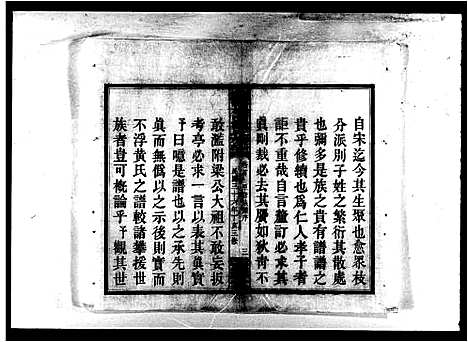 自宋迄今其生聚也愈眾枝
分派別子姓之蕃衍其散處
也彌多是族之貴有譜譜之
貴乎修續也為仁人孝子者
詎不重哉自言釐訂必求其
真則裁必去其贗如狄青不
敢濫附梁公大祖不敢妄扳
考亭必求一言以表其真實
予曰噫是譜也以之承先則
真而無偽以之示後則實而
不浮黃氏之譜較諸攀援世
族者豈可概論乎予觀其世